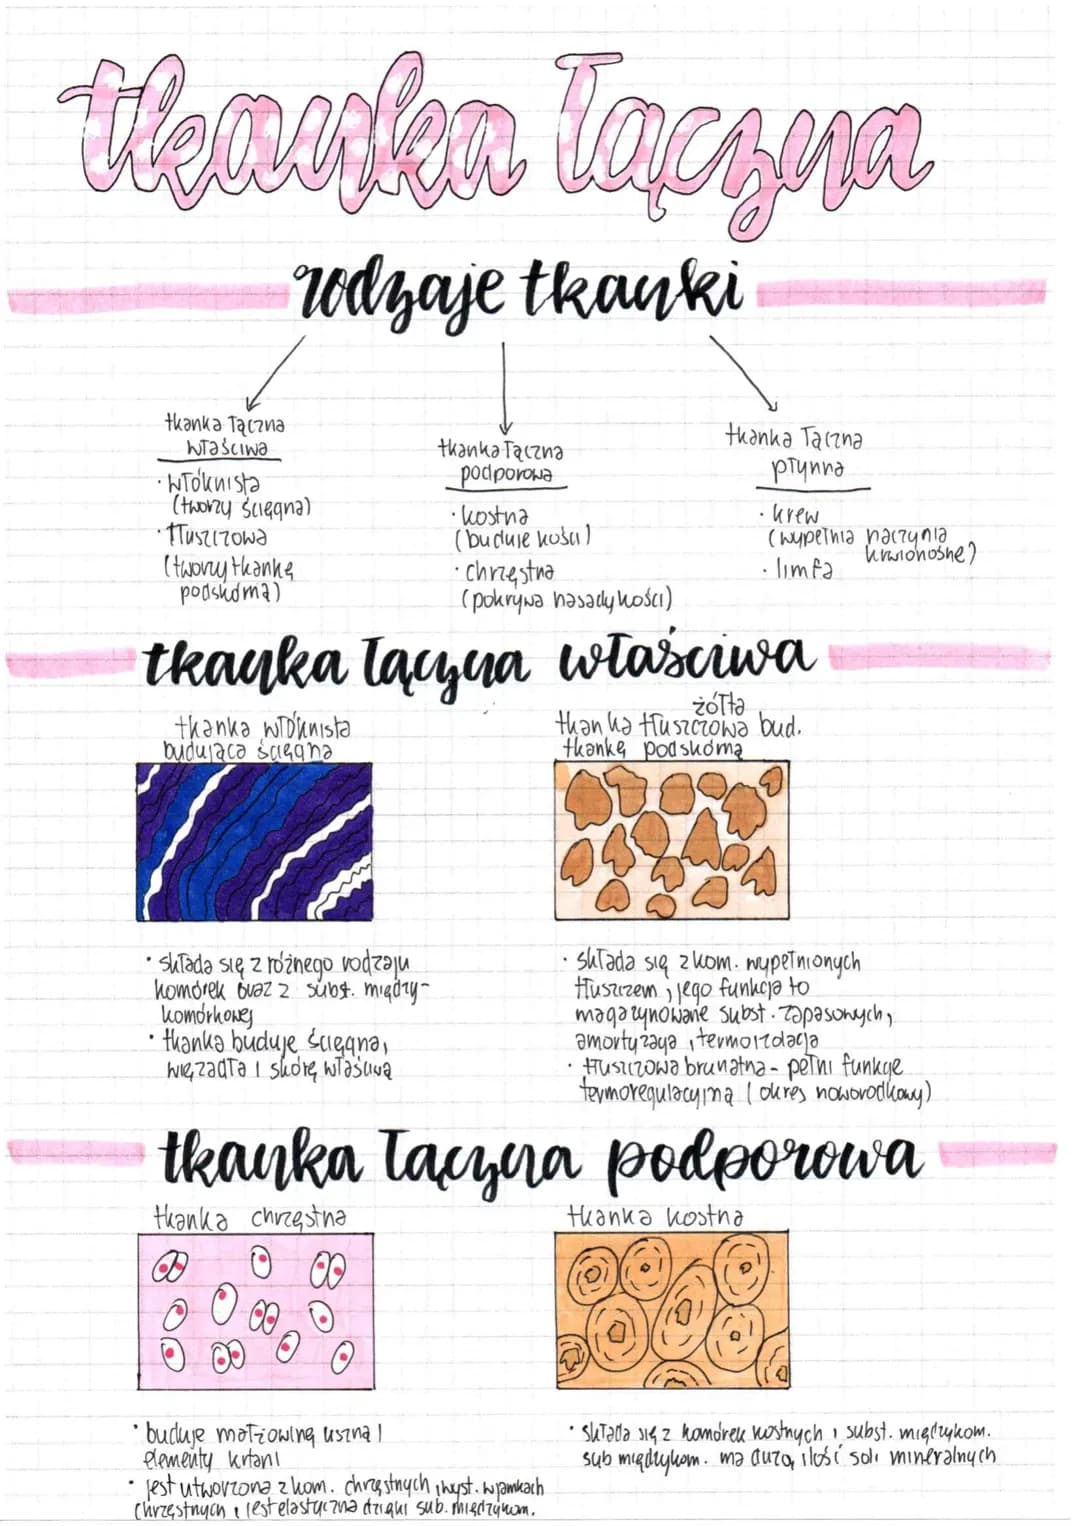 tkanka łączna
rodzaje tkanki
tkanka łączna
właściwa
· włóknista
(tworzy ścięgna)
· tłuszczowa
(tworzy tkankę
podskórną)
tkanka łączna
podporowa
· kostna
(buduje kości)
· chrzęstna
(pokrywa nasady kości)
tkanka łączna
płynna
· krew
(wypełnia naczynia
krwionośne)
· limfa
tkanka łączna właściwa
tkanka włóknista
budująca ścięgna
żółta
tkanka tłuszczowa bud.
tkankę podskórną
· składa się z różnego rodzaju
komórek oraz z subst. między-
komórkowej
· tkanka buduje ścięgna,
więzadła i skórę właściwą
· składa się z kom. wypełnionych
tłuszczem, jego funkcja to
magazynowanie subst. zapasowych,
amortyzacja, termoizolacja
· tłuszczowa brunatna - pełni funkcje
termoregulacyjną (okres noworodkowy)
tkanka łączna podporowa
tkanka chrzęstna
tkanka kostna
· buduje małżowinę uszną i
elementy krtani
· jest utworzona z kom. chrzęstnych, wyst. w jamkach
chrzęstnych, jest elastyczna dzięki sub. międzykom.
· składa się z komórek kostnych i subst. międzykom.
sub międzykom. ma dużą ilość soli mineralnych